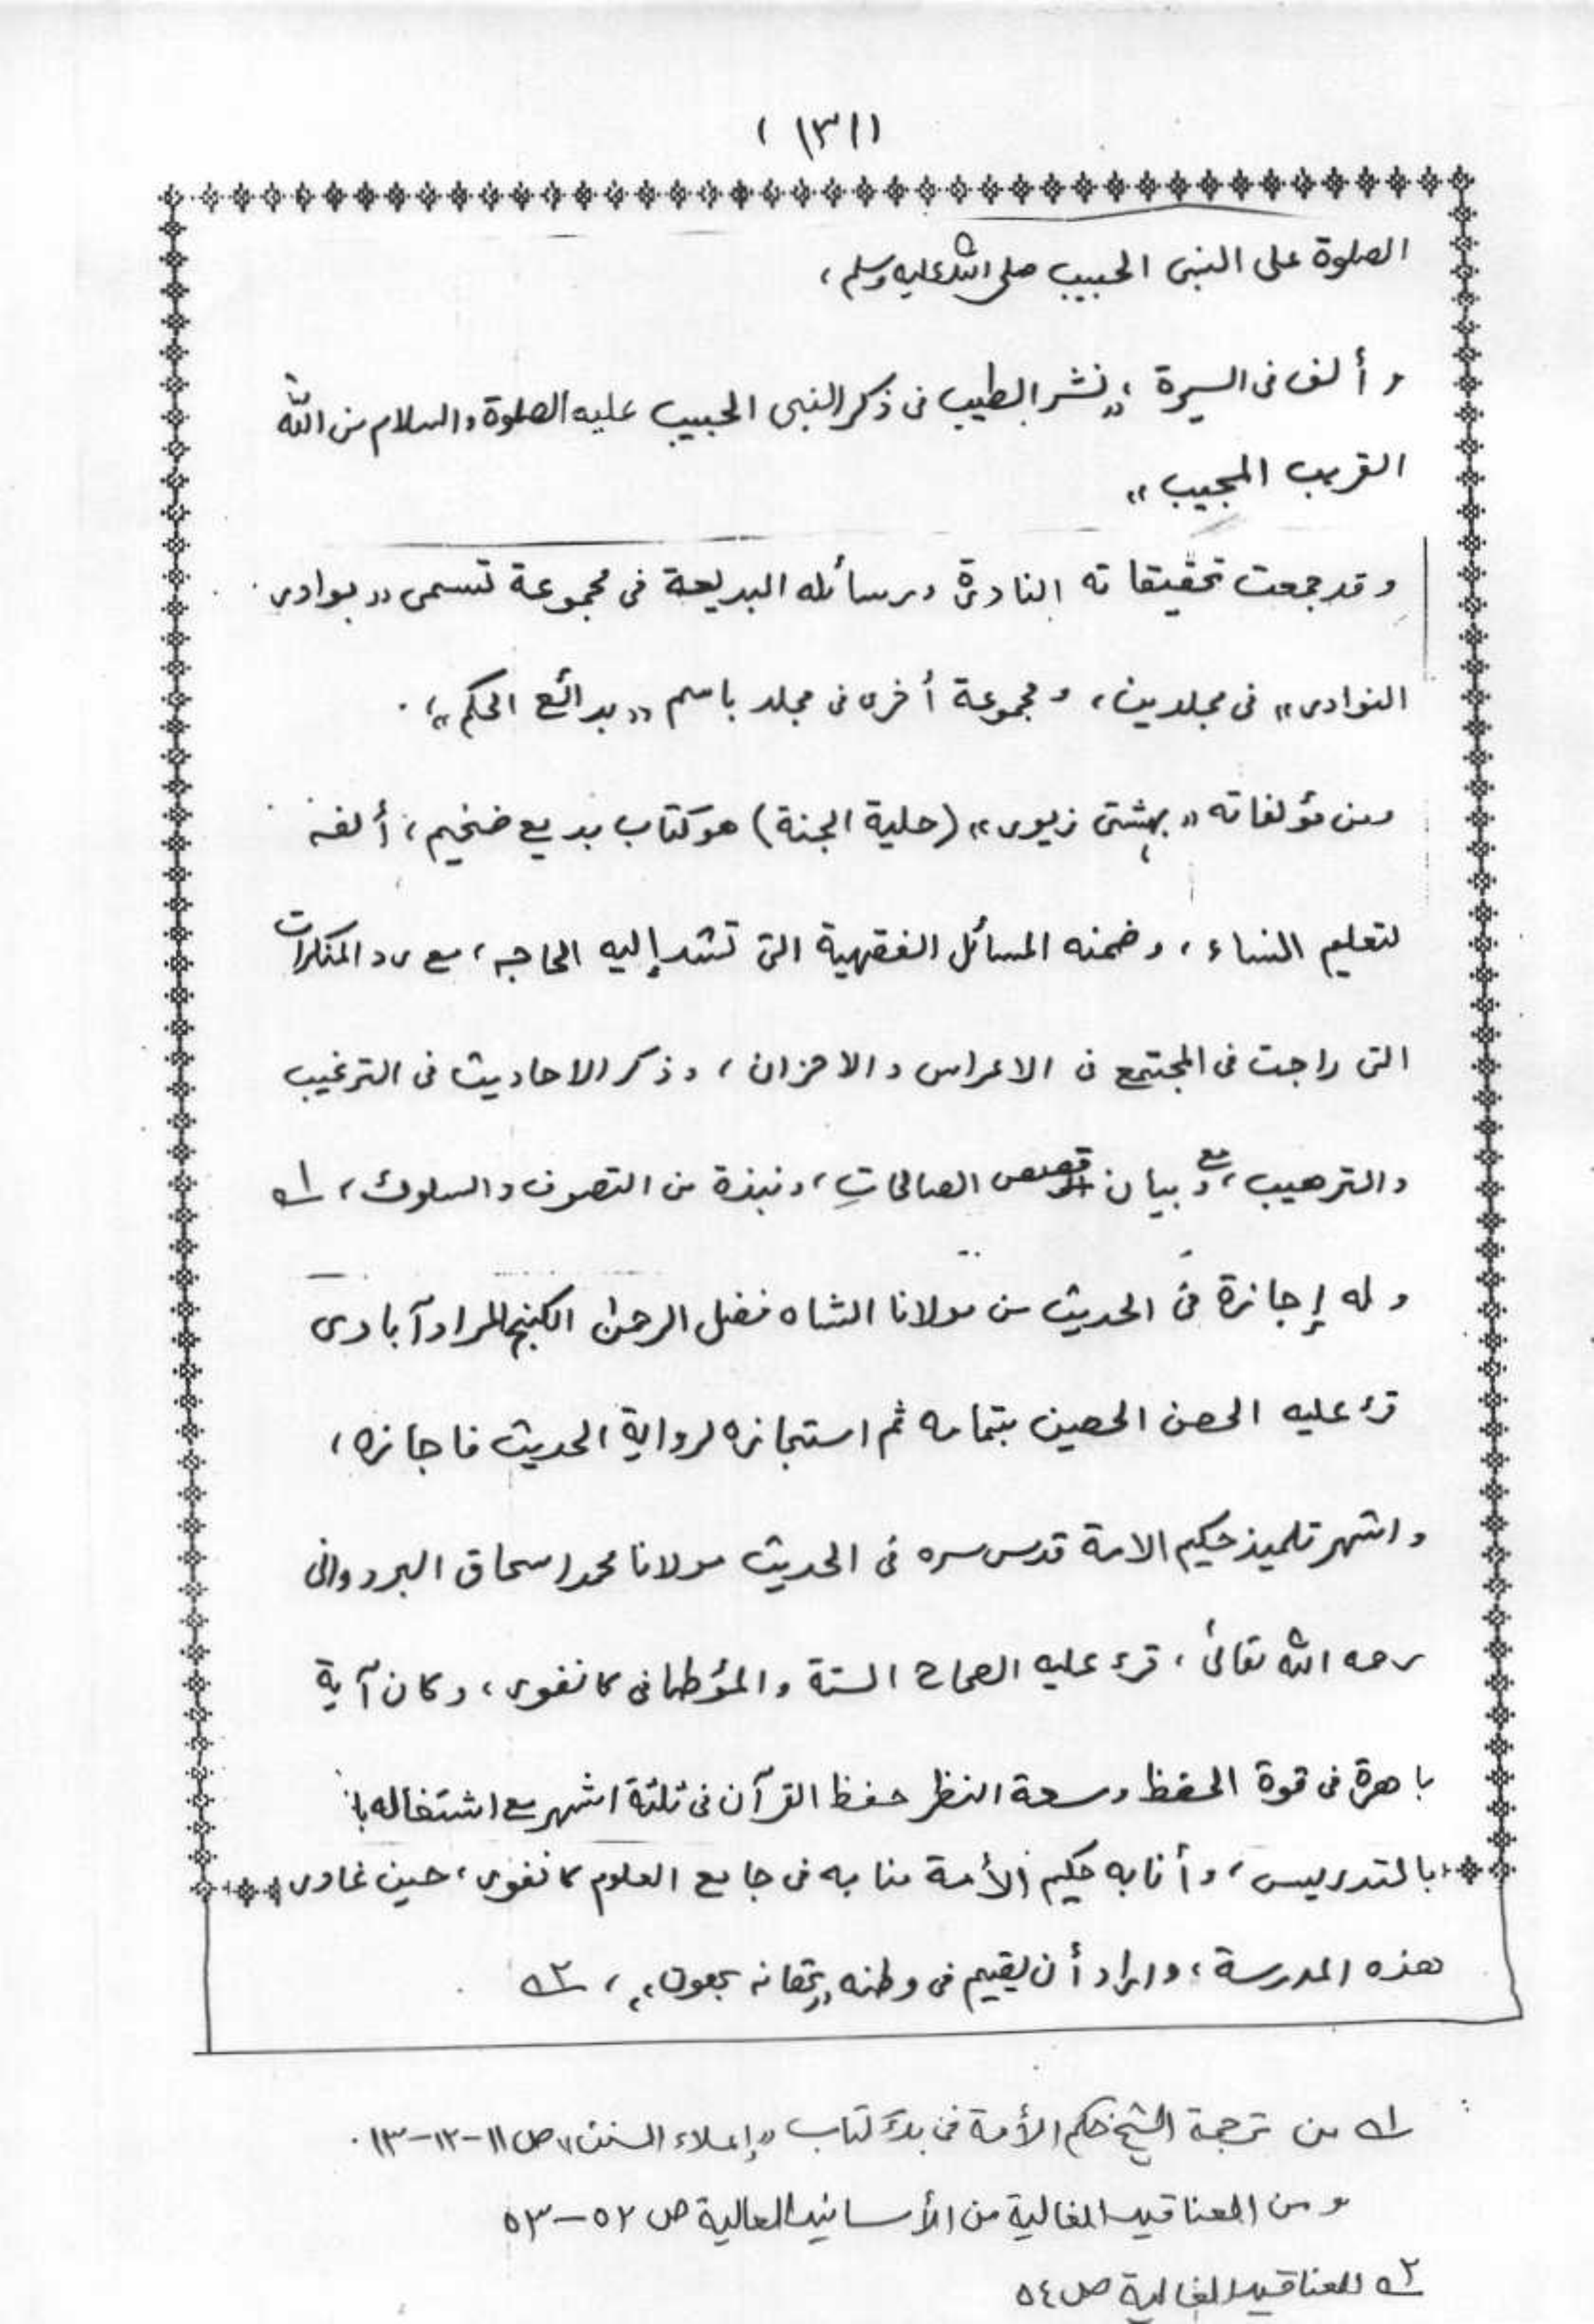 (١٣١)
الصلوة على النبى الحبيب صلى الله عليه وسلم،
و ألف فى السيرة ،، نشر الطيب فى ذكر النبى الحبيب عليه الصلوة والسلام من الله
القريب المجيب ،،
و قد جمعت تحقيقاته النادرة ورسائله البديعة فى مجموعة تسمى ،، بوادر
النوادر ،، فى مجلدين، و مجموعة أخرى فى مجلد باسم ،، بدائع الحكم ،،.
ومن مؤلفاته ،، بهشتى زيور ،، (حلية الجنة) هو كتاب بديع ضخيم، ألفه
لتعليم النساء، وضمنه المسائل الفقهية التى تشد إليه الحاجه، مع رد المنكرات
التى راجت فى المجتمع فى الاعراس و الاحزان، وذكر الاحاديث فى الترغيب
والترهيب، و مع بيان قصص الصالحاتِ، ونبذة من التصوف والسلوك، ١ـه
و له إجازة فى الحديث من مولانا الشاه فضل الرحمن الكنج المرادآبادى
قرء عليه الحصن الحصين بتمامه ثم استجازه لرواية الحديث فاجازه،
و اشتهر تلميذ حكيم الامة قدس سره فى الحديث مولانا محمد اسحاق البردوانى
رحمه الله تعالىٰ، قرء عليه الصحاح الستة و المؤطا فى كانفور، وكان آية
باهرة فى قوة الحفظ وسعة النظر حفظ القرآن فى ثلثة اشهر مع اشتغاله با
بالتدريس، و أنابه حكيم الأمة منابه فى جامع العلوم كانفور، حين غادر
هذه المدرسة، واراد أن يقيم فى وطنه ،، تهانه بهون ،،، ٢ـه
١ـه من ترجمة الشيخ حكم الأمة فى بدء كتاب ،، إعلاء السنن ،، ص ١١-١٢-١٣.
و من العناقيد الغالية من الأسانيد العالية ص ٥٢-٥٣
٢ـه العناقيد الغالية ص ٥٤